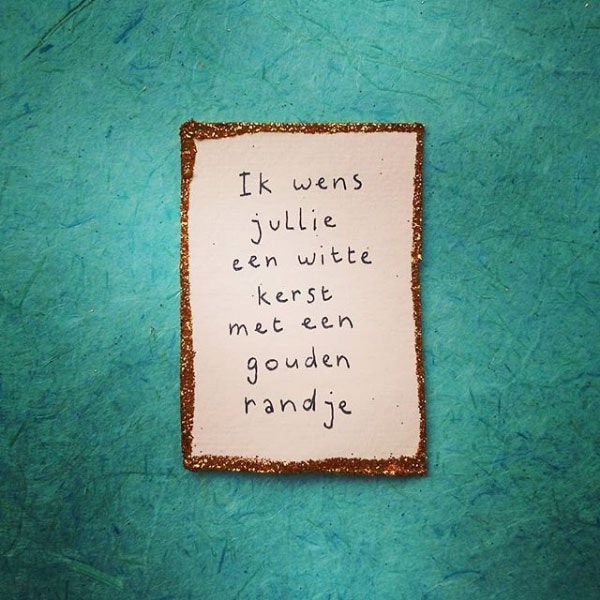 Ik wens
jullie
een witte
kerst
met een
gouden
randje